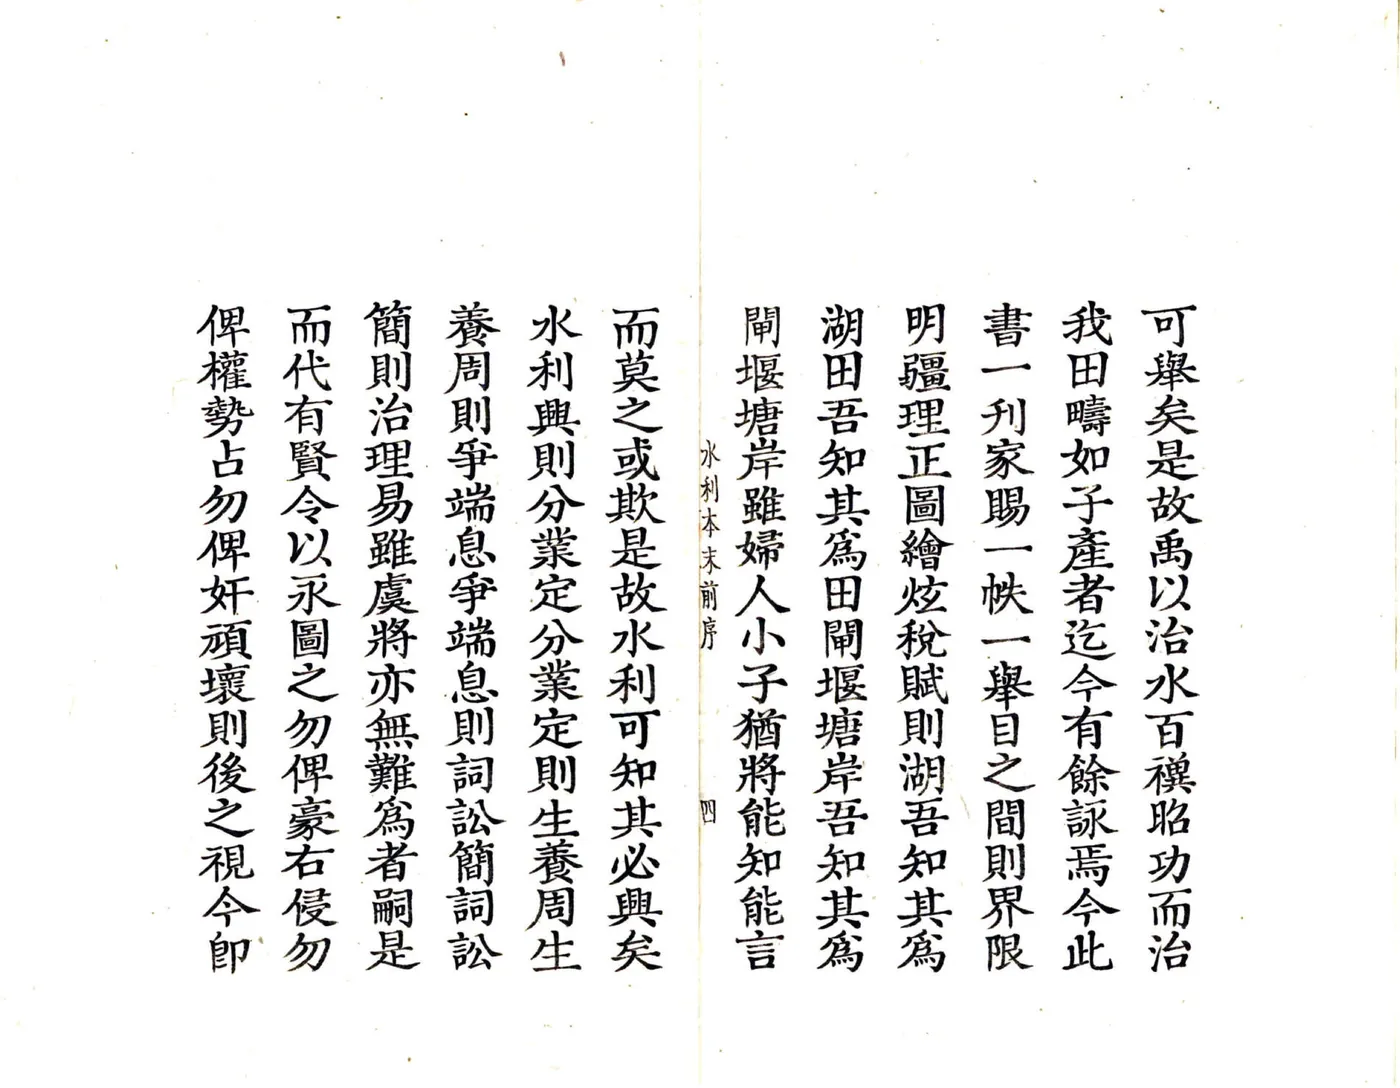 可舉矣是故禹以治水百禩昭功而治
我田疇如子產者迄今有餘詠焉今此
書一刊家賜一帙一舉目之間則界限
明疆理正圖繪炫稅賦則湖吾知其爲
湖田吾知其爲田閘堰塘岸吾知其爲
閘堰塘岸雖婦人小子猶將能知能言
水利本末前序
四
而莫之或欺是故水利可知其必興矣
水利興則分業定分業定則生養周生
養周則爭端息爭端息則詞訟簡詞訟
簡則治理易雖虞將亦無難爲者嗣是
而代有賢令以永圖之勿俾豪右侵勿
俾權勢占勿俾奸頑壞則後之視今卽